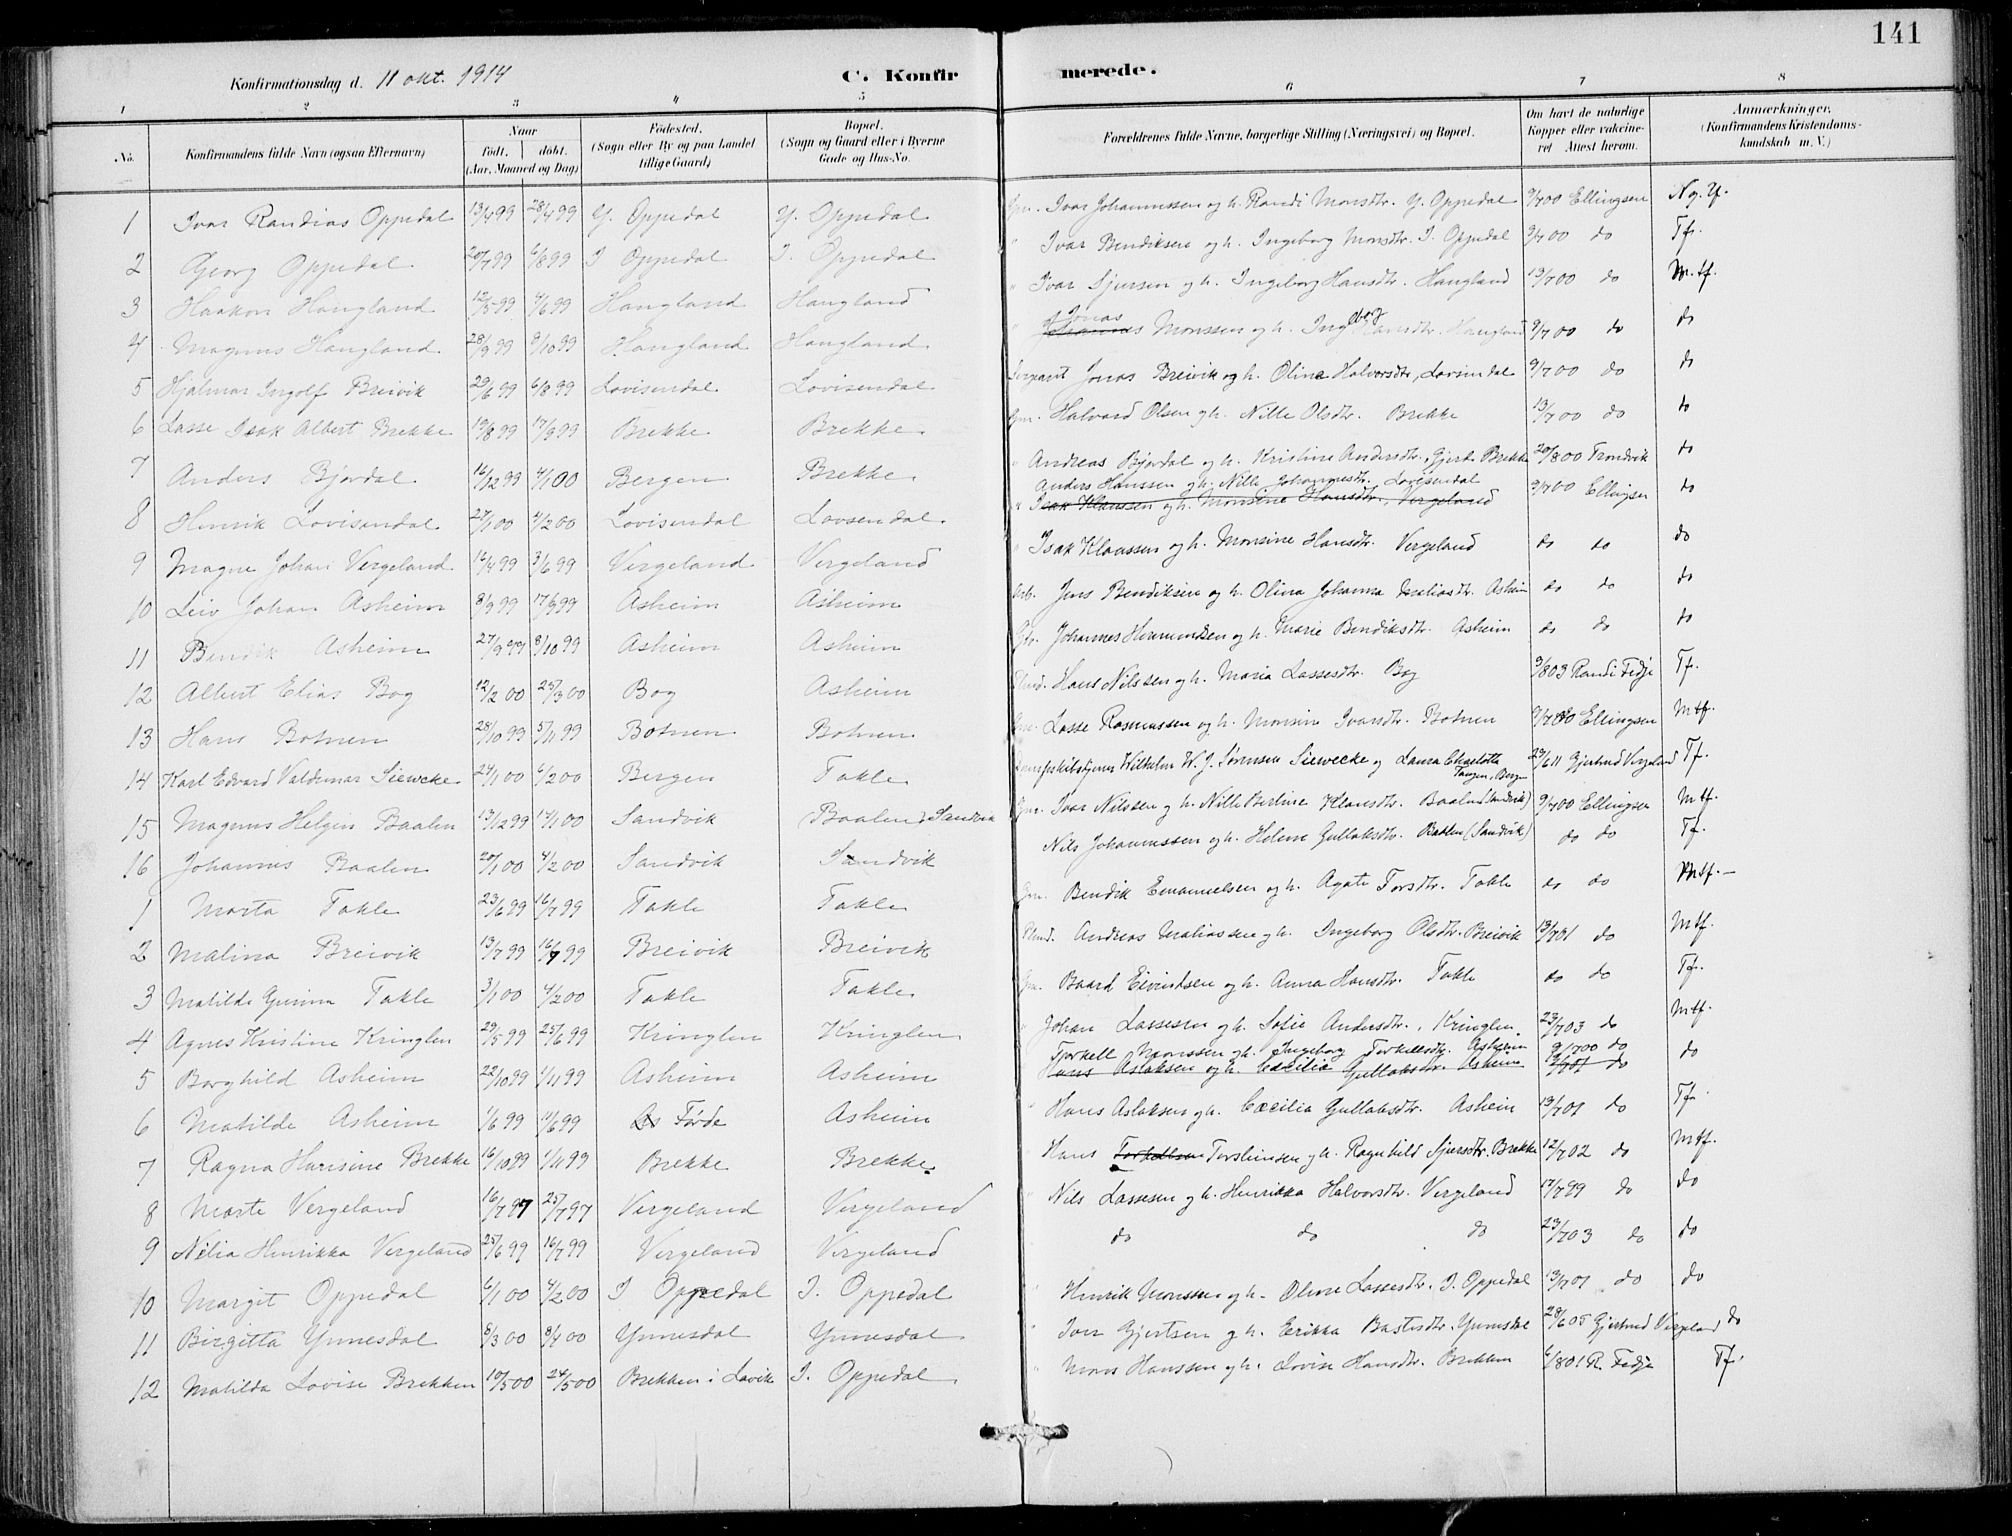 141
Konfirmationsdag d. 11 okt. 1914
C. Konfirmerede.
1 2 3 4 5 6 7 8
No.
Konfirmandens fulde Navn (ogsaa Efternavn)
Naar
født. døbt.
(Aar, Maaned og Dag)
Fødested.
(Sogn eller By og paa Landet
tillige Gaard)
Bopæl.
(Sogn og Gaard eller i Byerne
Gade og Hus-No.
Forældrenes fulde Navne, borgerlige Stilling (Næringsvei) og Bopæl.
Om havt de naturlige
Kopper eller vakcine-
ret Attest herom.
Anmærkninger.
(Konfirmandens Kristendoms-
kundskab m. V.)
1 Ivar Randias Oppedal 13/4 99 28/4 99 Y. Oppedal Y. Oppedal Gm. Ivar Johannessen og h. Randi Monsdtr. Y. Oppedal 9/7 00 Ellingsen
2 Georg Oppedal 20/7 99 6/8 99 I Oppedal I. Oppedal " Ivar Bendiksen og h. Ingeborg Monsdtr. I. Oppedal 9/7 00 do Tf.
3 Haakon Haugland 12/5 99 4/6 99 Haugland Haugland " Ivar Sjursen og h. Ingeborg Hansdtr. Haugland 13/7 00 do M.tf.
4 Magnus Haugland 28/9 99 8/10 99 Haugland Haugland " Johannes Jonas Monssen og h. Ingeborg Hansdtr. Haugland 9/7 00 do do
5 Hjalmar Ingolf Breivik 29/6 99 6/8 99 Lovisendal Lovisendal Sergeant Jonas Breivik og h. Oline Halvorsdtr, Lovisendal 9/7 00 do do
6 Lasse Isak Albert Brekke 19/8 99 17/9 99 Brekke Brekke Gm. Halvard Olsen og h. Nille Olsdtr. Brekke 13/7 00 do do
7 Anders Bjordal 16/12 99 4/1 00 Bergen Brekke " Andreas Bjordal og h. Kristine Andersdtr. Brekke 20/8 00 Trondvik do
8 Henrik Lovisendal 27/1 00 4/2 00 Lovisendal Lovsendal Anders Hanssen og h. Nille Johannesdtr. Lovisendal 9/7 00 Ellingsen do
" Isak Klaussen og h. Monsine Hansdtr, Vergeland
9 Magne Johan Vergeland 16/4 99 3/6 99 Vergeland Vergeland " Isak Klaussen og h. Monsine Hansdtr. Vergeland do do do
10 Leiv Johan Asheim 8/9 99 17/9 99 Asheim Asheim Arb. Jens Bendiksen og h. Olina Johanna Maliasdtr. Asheim do do do
11 Bendik Asheim 27/9 99 8/10 99 Asheim Asheim Johannes Hermundsen og h. Marie Bendiksdtr. Asheim do do do
12 Albert Elias Bog 12/2 00 25/3 00 Bog Asheim Hans Nilssen og h. Maria Lassesdtr. Bog 9/8 03 Randi Fedje Tf.
13 Hans Botnen 28/10 99 5/11 99 Botnen Botnen Gm. Lasse Rasmussen og h. Monsine Ivarsdtr. Botnen 9/7 00 Ellingsen Mtf.
14 Karl Edvard Valdemar Siewcke 24/1 00 6/2 00 Bergen Takle Wilhelm W. J. Sørensen Siewecke og Laura Charlotta Tangen, Bergen 29/6 11 Gjertrud Vergeland Tf.
15 Magnus Helgin Baalen 13/12 99 14/1 00 Sandvik Baalen, Sandvik Gm. Ivar Nilssen og h. Nille Berline Klausdtr. Baalen (Sandvik) 9/7 00 Ellingsen Mtf.
16 Johannes Baalen 20/1 00 4/2 00 Sandvik Sandvik Nils Johannessen og h. Helene Gullaksdtr. Baalen (Sandvik) do do Tf.
1 Marta Takle 23/6 99 16/7 99 Takle Takle Gm. Bendik Emanuelsen og h. Agate Torsdtr. Takle do do Mtf.
2 Malina Breivik 13/7 99 16/7 99 Breivik Breivik Andreas Maliassen og h. Ingeborg Olsdtr. Breivik 13/7 01 do Mtf.
3 Matilde Gurina Takle 3/1 00 4/2 00 Takle Takle Gm. Baard Eivindsen og h. Anna Hansdtr. Takle do do Tf.
4 Agnes Kristine Kringlen 29/5 99 25/6 99 Kringlen Kringlen " Johan Lassesen og h. Sofie Andersdtr., Kringlen 23/7 03 do Mtf.
5 Borghild Asheim 22/10 99 1/11 99 Asheim Asheim Torkell Monssen og h. Ingeborg Torkellsdtr. Asheim 9/7 00 do do
Hans Aslaksen og h. Cæcilia Gullaksdtr. Asheim 13/7 01 do
6 Matilde Asheim 1/6 99 11/6 99 Førde Asheim " Hans Aslaksen og h. Cæcilia Gullaksdtr. Asheim 13/7 01 do Tf.
7 Ragna Hansine Brekke 16/10 99 1/11 99 Brekke Brekke Hans Torkellsen Torsteinsen og h. Ragnhild Sjursdtr. Brekke 12/7 02 do Mtf.
8 Marte Vergeland 16/7 97 25/7 97 Vergeland Vergeland " Nils Lassesen og h. Henrikka Halvorsdtr. Vergeland 17/7 99 do do
9 Nelia Henrikka Vergeland 25/6 99 16/7 99 Vergeland Vergeland do do do 23/7 03 do do
10 Margit Oppedal 6/1 00 4/2 00 I Oppedal I. Oppedal " Henrik Monssen og h. Oline Lassesdtr. I. Oppedal 13/7 01 do do
11 Birgitta Ynnesdal 8/3 00 8/4 00 Ynnesdal Ynnesdal " Iver Gjertsen og h. Erikka Bastesdtr. Ynnesdal 28/6 05 Gjertrud Vergeland do
12 Matilda Lovise Brekken 10/5 00 24/5 00 Brekken i Lavik I. Oppedal " Mons Hanssen og h. Lovise Hansdtr. Brekken 6/8 01 R. Fedje Tf.